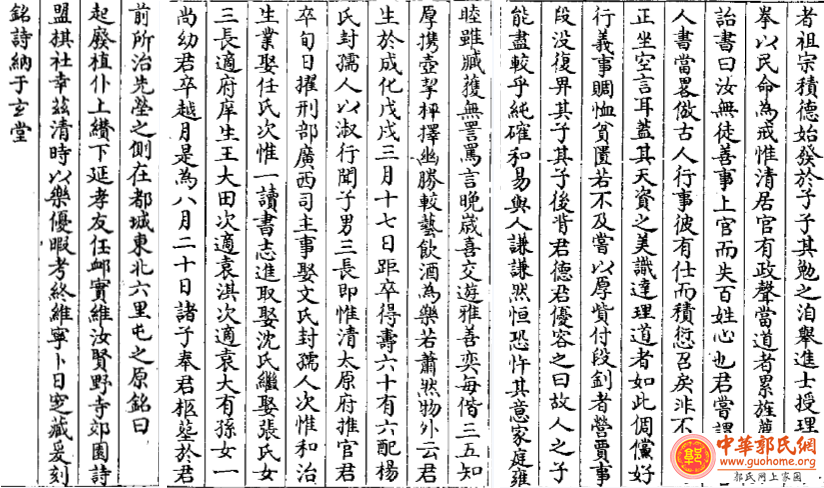 者祖宗積德始發於子子其勉之洎舉進士授理
拳以民命為戒惟清居官有政聲當道者累旌薦
詒書曰汝無徒善事上官而失百姓心也君嘗謂
人書當畧倣古人行事彼有仕而積愆召戾非不
正坐空言耳蓋其天資之美識達理道者如此倜儻好
行義事賙恤貧匱若不及嘗以厚貲付段釗者營賈事
段没復畀其子其子後背君德君優容之曰故人之子
能盡較乎純確和易與人謙謙然恒恐忤其意家庭雍
睦雖臧獲無詈罵言晚歲喜交遊雅善奕每偕三五知
厚攜壺挈枰擇幽勝較藝飲酒為樂若蕭然物外云君
生於成化戊戌三月十七日距卒得壽六十有六配楊
氏封孺人以淑行聞子男三長即惟清太原府推官君
卒旬日擢刑部廣西司主事娶文氏封孺人次惟和治
生業娶任氏次惟一讀書志進取娶沈氏繼娶張氏女
三長適府庠生王大田次適袁淇次適袁大有孫女一
尚幼君卒越月是為八月二十日諸子奉君柩塟於君
前所治先塋之側在都城東北六里屯之原銘曰
起廢植仆上纉下延孝友任䘏實維汝賢野寺郊園詩
盟棋社幸茲清時以樂優暇考終維寧卜日窆藏爰刻
銘詩納于玄堂
中華郭氏網
www.guohome.org
郭氏网上家园